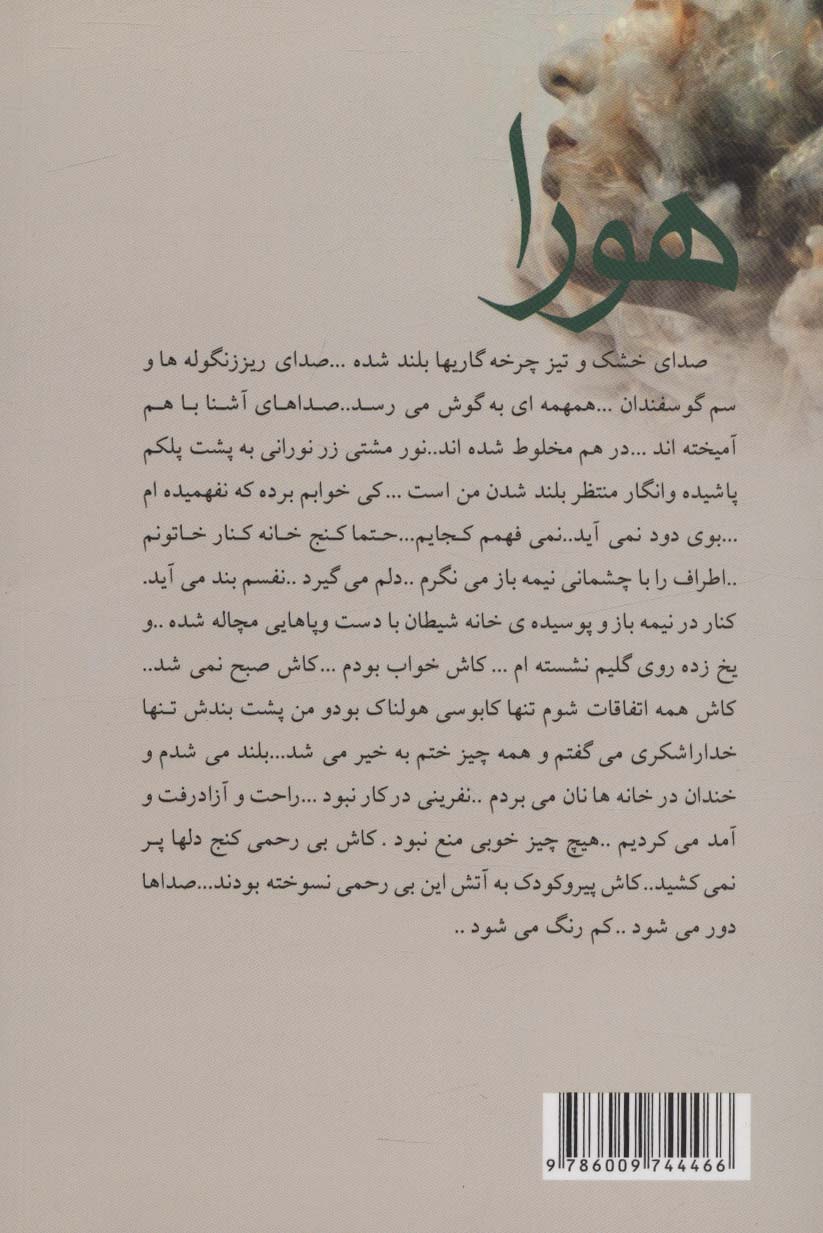 هورا
صدای خشک و تیز چرخه گاریها بلند شده ...صدای ریززنگوله ها و
سم گوسفندان ...همهمه ای به گوش می رسد..صداهای آشنا با هم
آمیخته اند ...در هم مخلوط شده اند..نور مشتی زر نورانی به پشت پلکم
پاشیده وانگار منتظر بلند شدن من است ...کی خوابم برده که نفهمیده ام
...بوی دود نمی آید..نمی فهمم کجایم...حتما کنج خانه کنار خاتونم
..اطراف را با چشمانی نیمه باز می نگرم ..دلم می گیرد ..نفسم بند می آید.
کنار در نیمه باز و پوسیده ی خانه شیطان با دست وپاهایی مچاله شده ..و
یخ زده روی گلیم نشسته ام ... کاش خواب بودم ...کاش صبح نمی شد..
کاش همه اتفاقات شوم تنها کابوسی هولناک بودو من پشت بندش تنها
خداراشکری می گفتم و همه چیز ختم به خیر می شد...بلند می شدم و
خندان در خانه ها نان می بردم ..نفرینی درکار نبود ...راحت و آزادرفت و
آمد می کردیم ..هیچ چیز خوبی منع نبود . کاش بی رحمی کنج دلها پر
نمی کشید..کاش پیروکودک به آتش این بی رحمی نسوخته بودند...صداها
دور می شود ..کم رنگ می شود ..
9 786009 744466